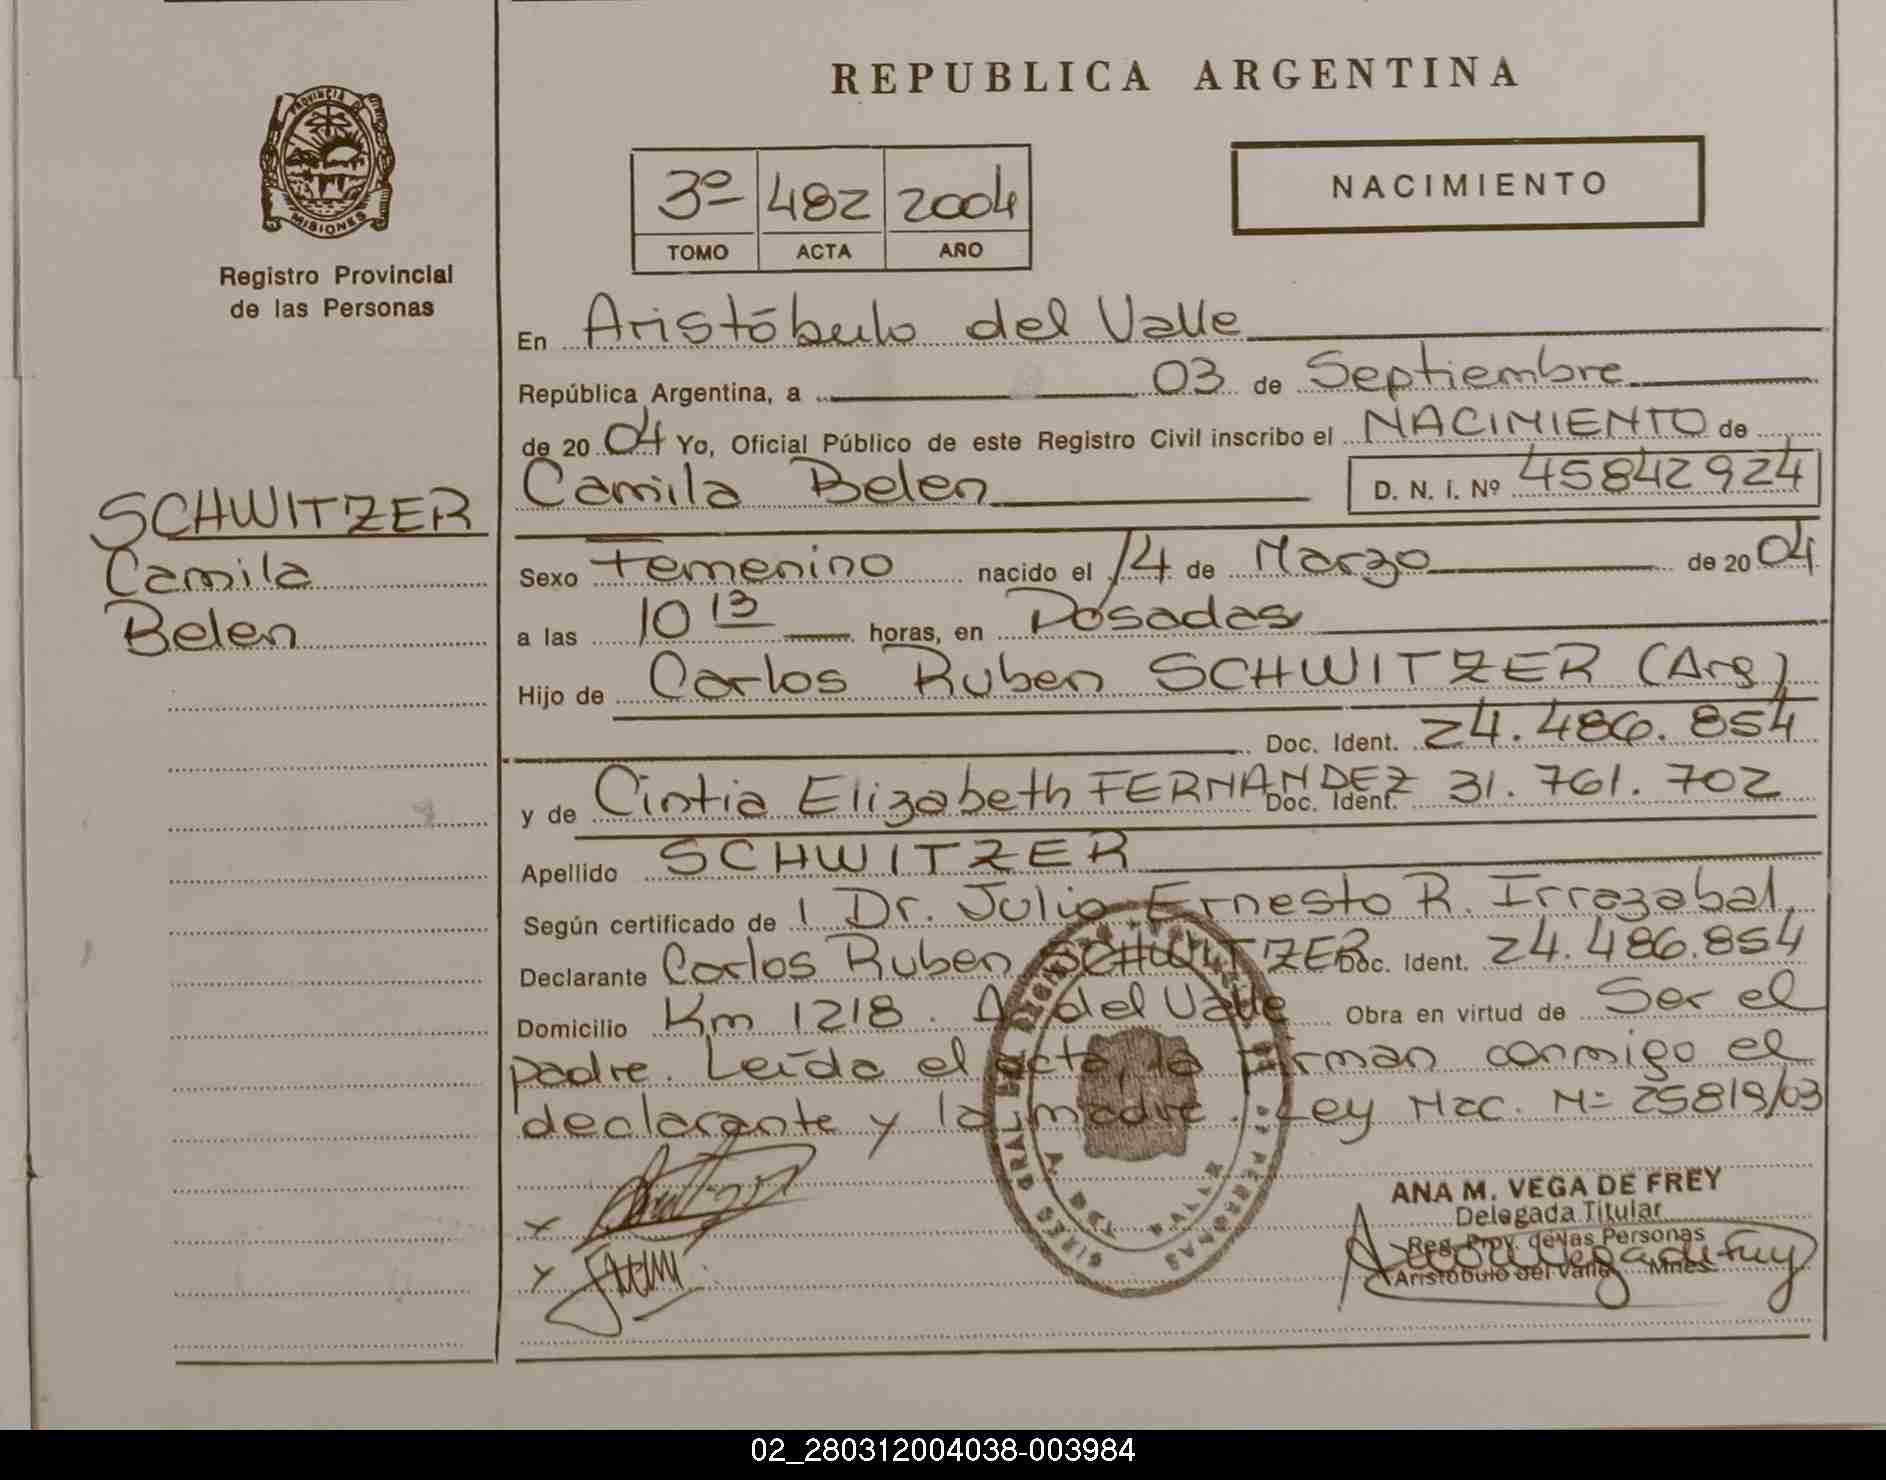 REPUBLICA ARGENTINA
PROVINCIA DE
MISIONES
Registro Provincial
de las Personas
3º 482 2004
TOMO ACTA AÑO
NACIMIENTO
En Aristóbulo del Valle
República Argentina, a 03 de Septiembre
de 20 04 Yo, Oficial Público de este Registro Civil inscribo el NACIMIENTO de
Camila Belen D. N. I. Nº 45842924
SCHWITZER
Camila
Belen
Sexo Femenino nacido el 14 de Marzo de 20 04
a las 10 13 horas, en Posadas
Hijo de Carlos Ruben SCHWITZER (Arg)
Doc. Ident. 24.486.854
y de Cintia Elizabeth FERNANDEZ Doc. Ident. 31.761.702
Apellido SCHWITZER
Según certificado de Dr. Julio Ernesto R. Irrazabal
Declarante Carlos Ruben SCHWITZER Doc. Ident. 24.486.854
Domicilio Km 1218. A. del Valle Obra en virtud de Ser el
padre. Leída el acta, la firman conmigo el
declarante y la madre. Ley Nac. Nº 25819/03
ANA M. VEGA DE FREY
Delegada Titular
Reg. Prov. de las Personas
Aristóbulo del Valle Mnes.
A. DEL VALLE
02_280312004038-003984